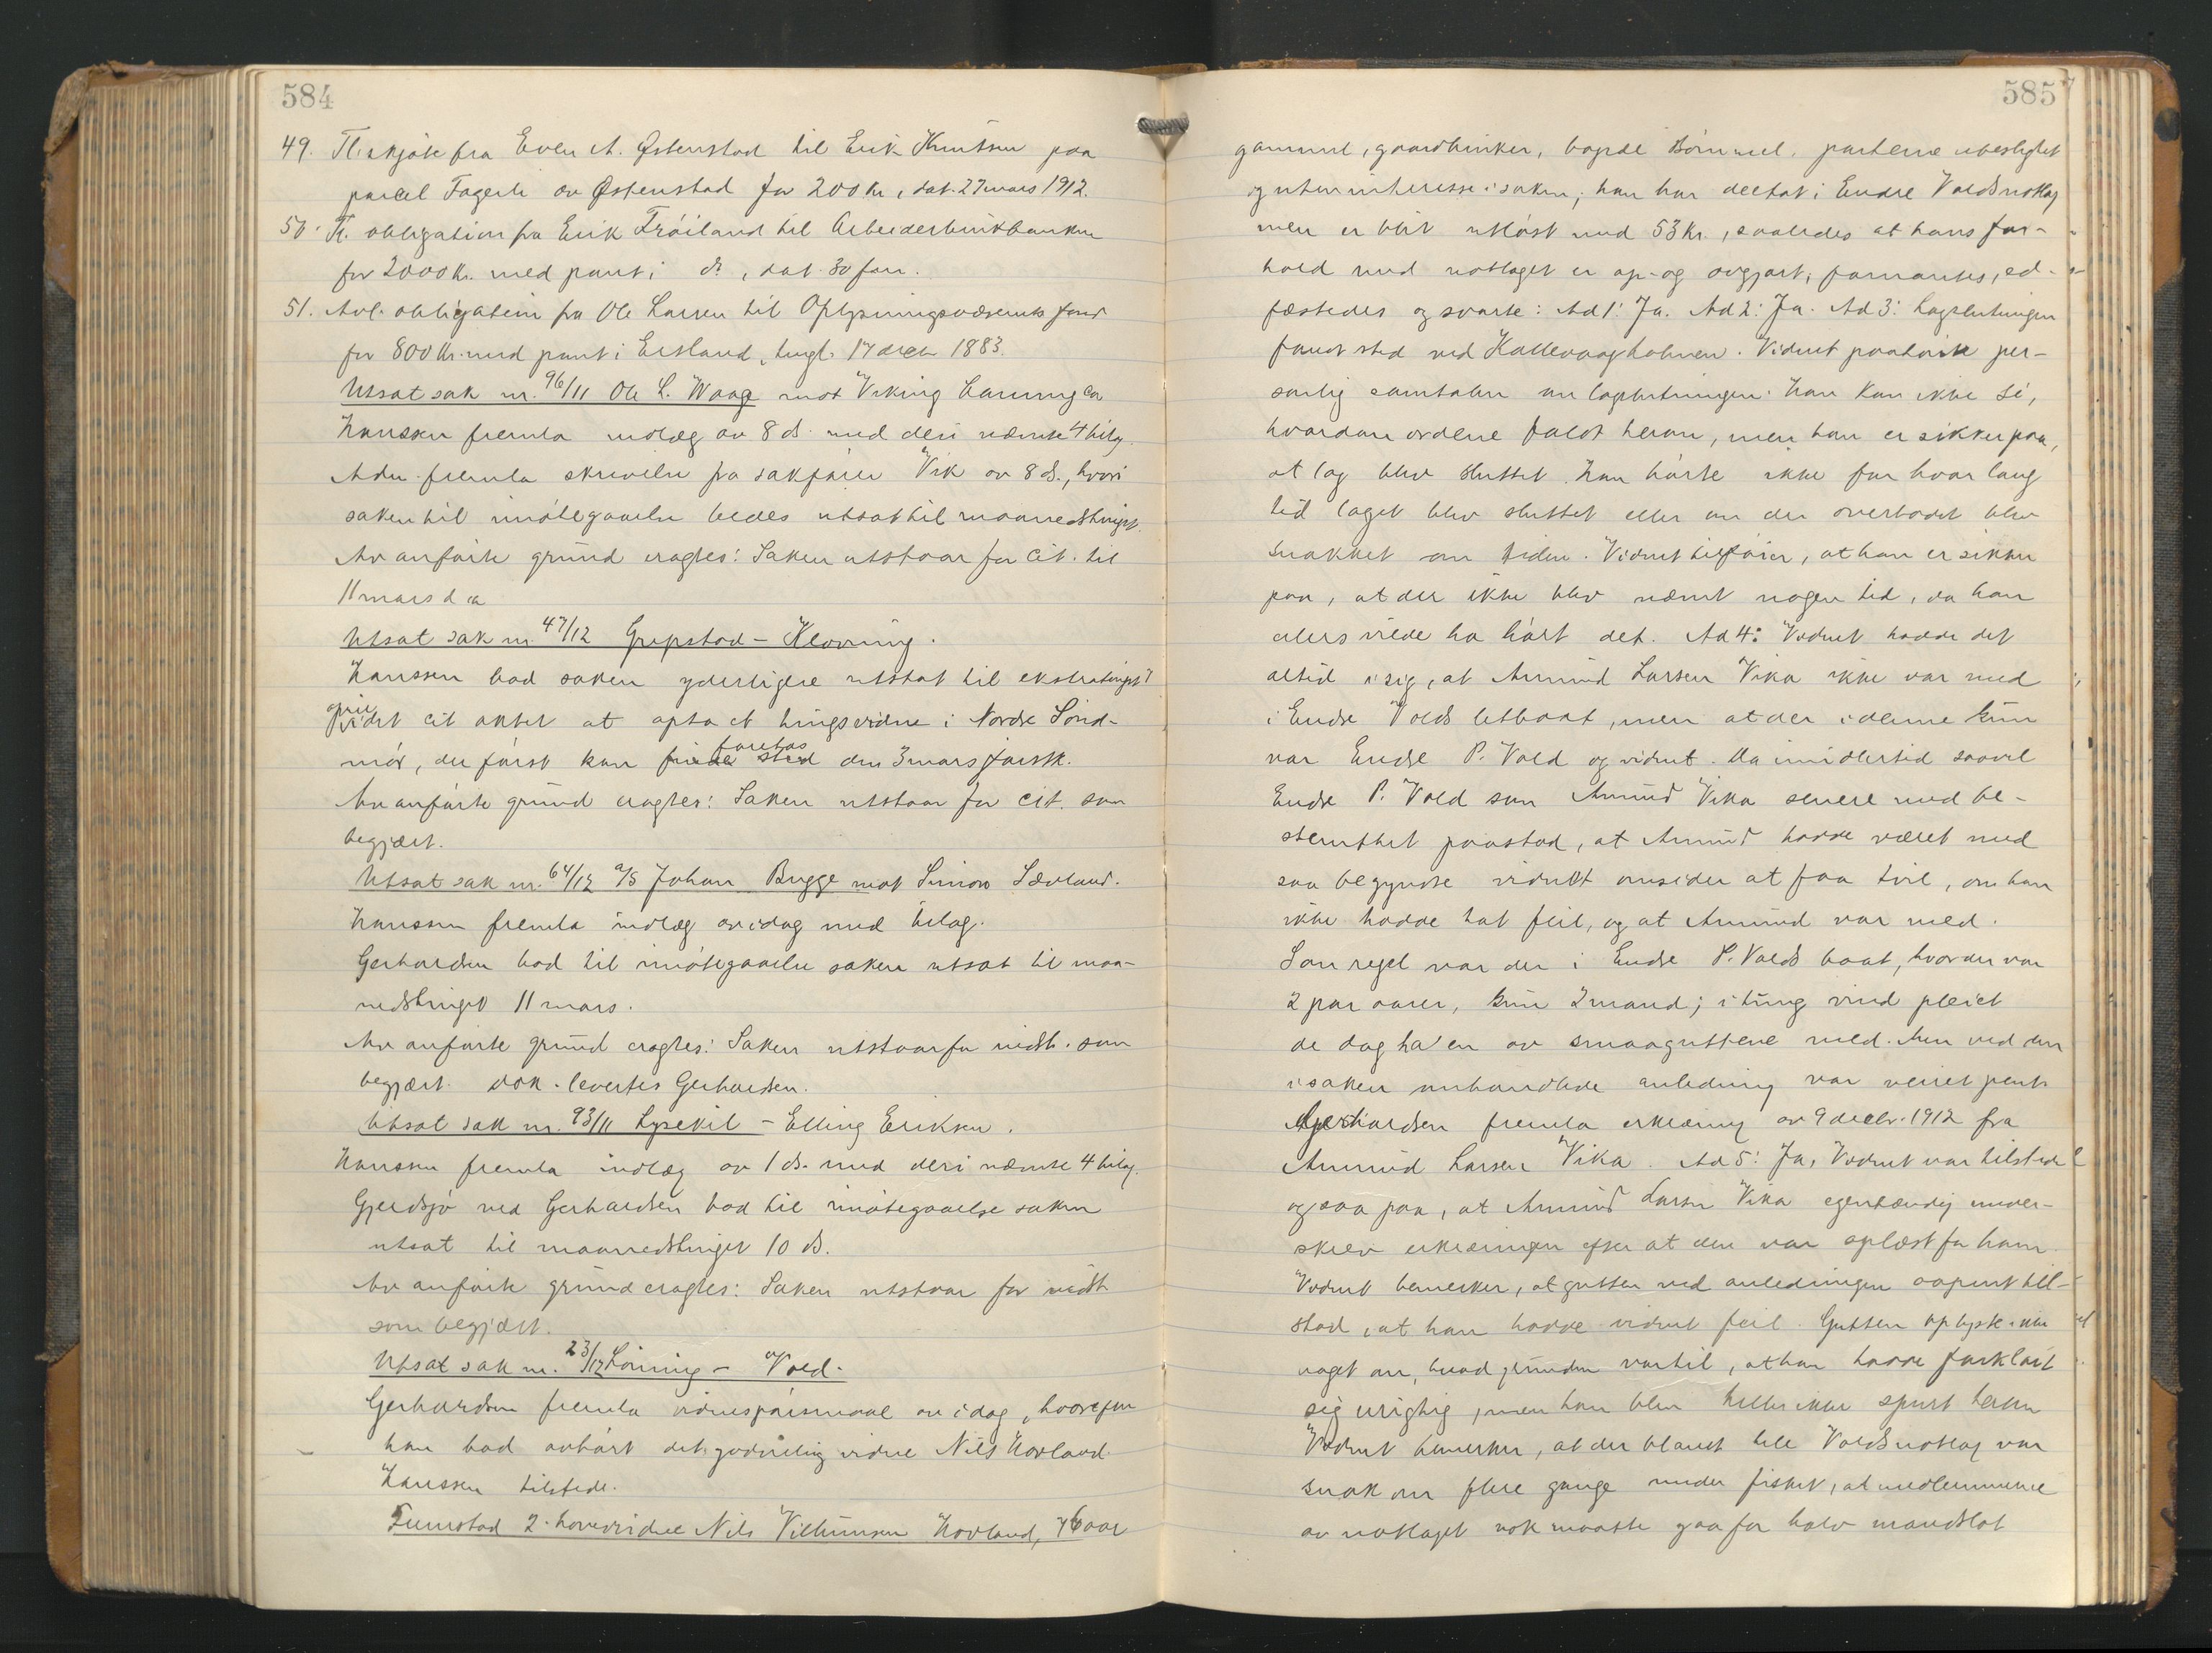 584
49. Tl. skjøte fra Even A. Østenstad til Erik Knutsen paa
parcel Fagerli av Østenstad for 200 kr, dat. 27 mars 1912.
50. Tl. obligation fra Erik Frøiland til Arbeiderbrukbanken
for 2000 Kr. med pant i do, dat. 30 jan.
51. Avl. obligation fra Ole Larsen til Oplysningsvæsenets fond
for 800 Kr. med pant i Eidsland, tingl. 17 decbr 1883.
Utsat sak nr. 96/11 Ole L. Waage mot Viking Canning Co
Hanssen fremla indlæg av 8 ds. med deri nævnte 4 bilag.
Adm. fremla skrivelse fra sakfører Vik av 8 ds., hvori
saken til imøtegaaelse bedes utsat til maanedstinget.
Av anførte grund eragtes: Saken utstaar for cit. til
11 mars d a
Utsat sak nr. 47/12 Grepstad - Klovning.
Hanssen bad saken yderligere utsat til ekstratinget
april idet cit agtet at opta et tingsvidne i Nordre Sønd-
mør, der først kan foretas den 3 mars førstk.
Av anførte grund eragtes: Saken utstaar for cit. som
begjært.
Utsat sak nr. 64/12 a/s Johan Bugge mot Simon Sævland.
Hanssen fremla indlæg av idag med bilag.
Gerhardsen bad til imøtegaaelse saken utsat til maa-
nedstinget 11 mars.
Av anførte grund eragtes: Saken utstaar for indst. som
begjært. dok. levertes Gerhardsen.
Utsat sak nr. 93/11 Lysekil - Elling Eriksen.
Hanssen fremla indlæg av 1 ds. med deri nævnte 4 bilag.
Gjerdsjø ved Gerhardsen bad til imøtegaaelse saken
utsat til maanedstinget 10 ds.
Av anførte grund eragtes: Saken utstaar for indst.
som begjært.
Utsat sak nr. 23/12 Lønning - Vold.
Gerhardsen fremla vidnespørsmaal av idag, hvorefter
han bad avhørt det godvillig vidne Nils Hovland.
Hanssen tilstede.
Fremstod 2. hovedvidne Nils Villumsen Hovland, 46 aar
585
gammel, gaardbruker, bopæl Bømmel, parterne ubeslegtet
og uten interesse i saken; han har deltat i Endre Volds notlag
men er blit utløst med 53 kr., saaledes at hans for-
hold med notlaget er op- og avgjort, formantes, ed-
fæstedes og svarte: Ad 1: Ja. Ad 2: Ja. Ad 3: Lagslutningen
fandt sted ved Kallevaagholmen. Vidnet paahørte per-
sonlig samtalen om lagslutningen. Han kan ikke si,
hvordan ordene faldt herom, men han er sikker paa,
at lag blev sluttet. Han hørte ikke for hvor lang
tid laget blev sluttet eller om der overhodet blev
snakket om tiden. Vidnet tilføier, at han er sikker
paa, at der ikke blev nævnt nogen tid, da han
ellers vilde ha hørt det. Ad 4: Vidnet hadde det
altid i sig, at Amund Larsen Vika ikke var med
i Endre Volds letbaat, men at der i denne kun
var Endre P. Vold og vidnet. Da imidlertid saavel
Endre P. Vold som Amund Vika senere med be-
stemthet paastod, at Amund hadde været med
saa begyndte vidnet omsider at faa tvil, om han
ikke hadde tat feil, og at Amund var med.
Som regel var der i Endre P. Volds baat, hvor der var
2 par aarer, kun 2 mand; i tung vind pleiet
de dog ha en av smaaguttene med. Men ved den
i saken omhandlede anledning var veiret pent.
Gerhardsen fremla erklæring av 9 decbr. 1912 fra
Amund Larsen Vika. Ad 5: Ja, Vidnet var tilstede
og saa paa, at Amund Larsen Vika egenhændig under-
skrev erklæringen efter at den var oplæst for ham.
Vidnet bemerker, at gutten ved anledningen aapent til-
stod, at han hadde vidnet feil. Gutten oplyste ikke
noget om, hvad grunden var til, at han hadde forklart
sig urigtig, men han blev heller ikke spurt herom
Vidnet bemerker, at der blandt hele Volds notlag var
snak om flere gange under fisket, at medlemmene
av notlaget nok maatte gaa for halv mandslot